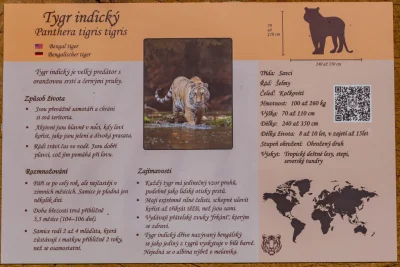 Tygr indický
Panthera tigris tigris
Bengal tiger
Bengalischer tiger
Tygr indický je velký predátor s
oranžovou srstí a černými pruhy.
Způsob života
Jsou převážně samotáři a chrání
si svá teritoria.
Aktivní jsou hlavně v noci, kdy loví
kořist, jako jsou jeleni a divoká prasata.
Rádi tráví čas ve vodě. Jsou dobří
plavci, což jim pomáhá při lovu.
Rozmnožování
Páří se po celý rok, ale nejčastěji v
zimních měsících. Samice je plodná jen
několik dní.
Doba březosti trvá přibližně
3,5 měsíce (104–106 dní).
Samice rodí 2 až 4 mláďata, která
zůstávají s matkou přibližně 2 roky,
než se osamostatní.
Zajímavosti
Každý tygr má jedinečný vzor pruhů,
podobně jako lidské otisky prstů.
Mají extrémně silné čelisti, schopné ulovit
kořist až třikrát těžší, než jsou sami.
Vydávají přátelské zvuky frkání, kterým
se zdraví.
Tygr indický dříve nazývaný bengálský
se jako jediný z tygrů vyskytuje v bílé barvě.
Nejedná se o albína nýbrž o melanika.
70 až
110 cm
240 až 330 cm
Třída: Savci
Řád: Šelmy
Čeleď: Kočkovití
Hmotnost: 100 až 260 kg
Výška: 70 až 110 cm
Délka: 240 až 330 cm
Délka života: 8 až 10 let, v zajetí až 15let
Stupeň ohrožení: Ohrožený druh
Výskyt: Tropické deštné lesy, stepi,
severské tundry